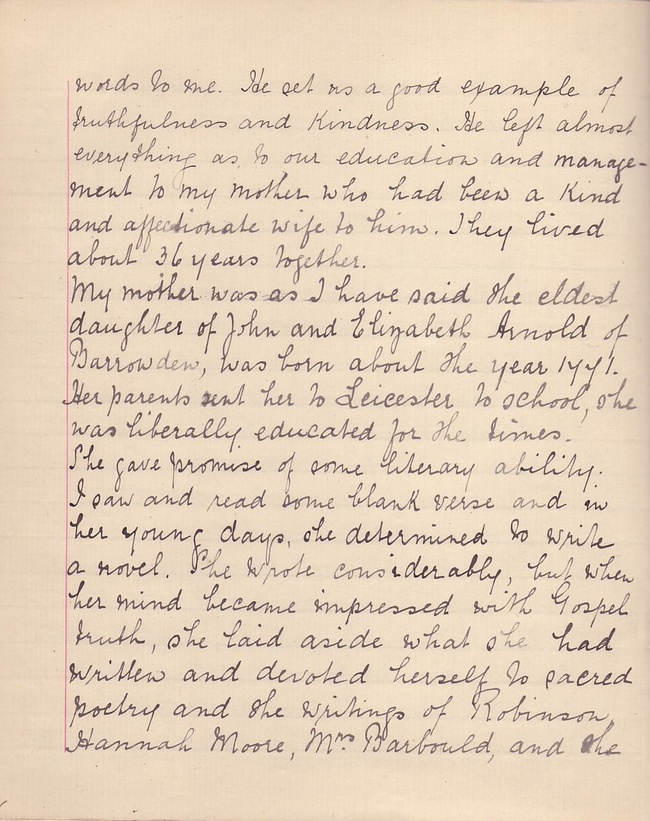 words to me. He set us a good example of
truthfulness and Kindness. He left almost
everything as to our education and manage-
ment to my mother who had been a Kind
and affectionate wife to him. They lived
about 36 years together.
My mother was as I have said the eldest
daughter of John and Elizabeth Arnold of
Barrowden, was born about the year 1771.
Her parents sent her to Leicester to school, she
was liberally educated for the times.
She gave promise of some literary ability.
I saw and read some blank verse and in
her young days, she determined to write
a novel. She wrote considerably, but when
her mind became impressed with Gospel
truth, she laid aside what she had
written and devoted herself to sacred
poetry and the writings of Robinson,
Hannah Moore, Mrs Barbould, and the